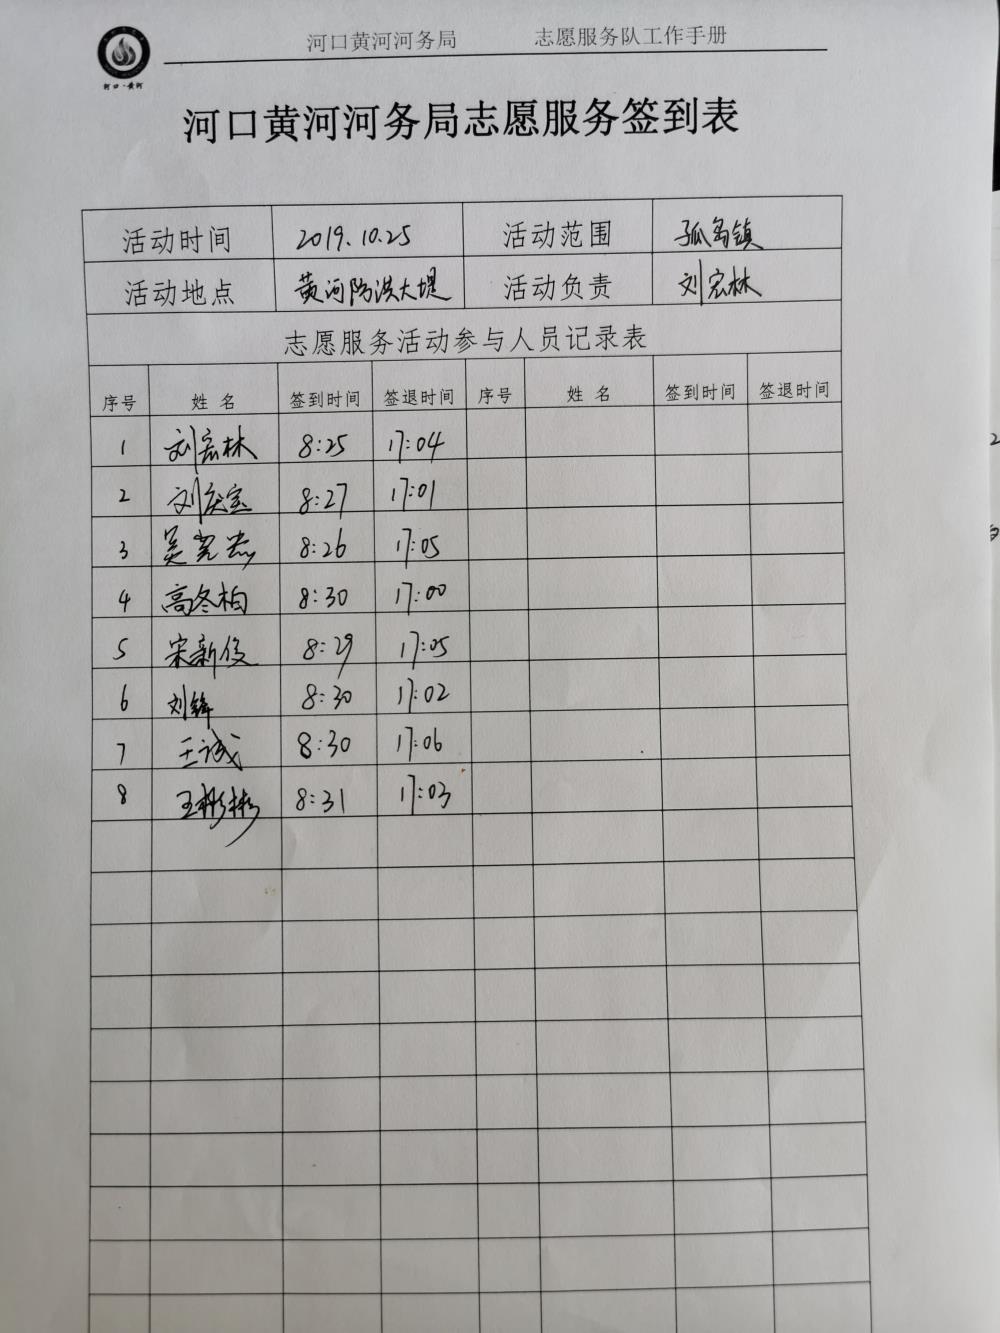 河口黄河河务局 志愿服务队工作手册
河口·黄河
河口黄河河务局志愿服务签到表
活动时间 2019.10.25 活动范围 孤岛镇
活动地点 黄河防洪大堤 活动负责 刘宏林
志愿服务活动参与人员记录表
序号 姓名 签到时间 签退时间 序号 姓名 签到时间 签退时间
1 刘宏林 8:25 17:04
2 刘庆宝 8:27 17:01
3 吴 8:26 17:05
4 高冬柏 8:30 17:00
5 宋新俊 8:29 17:05
6 刘锋 8:30 17:02
7 王诚 8:30 17:06
8 王彬彬 8:31 17:03